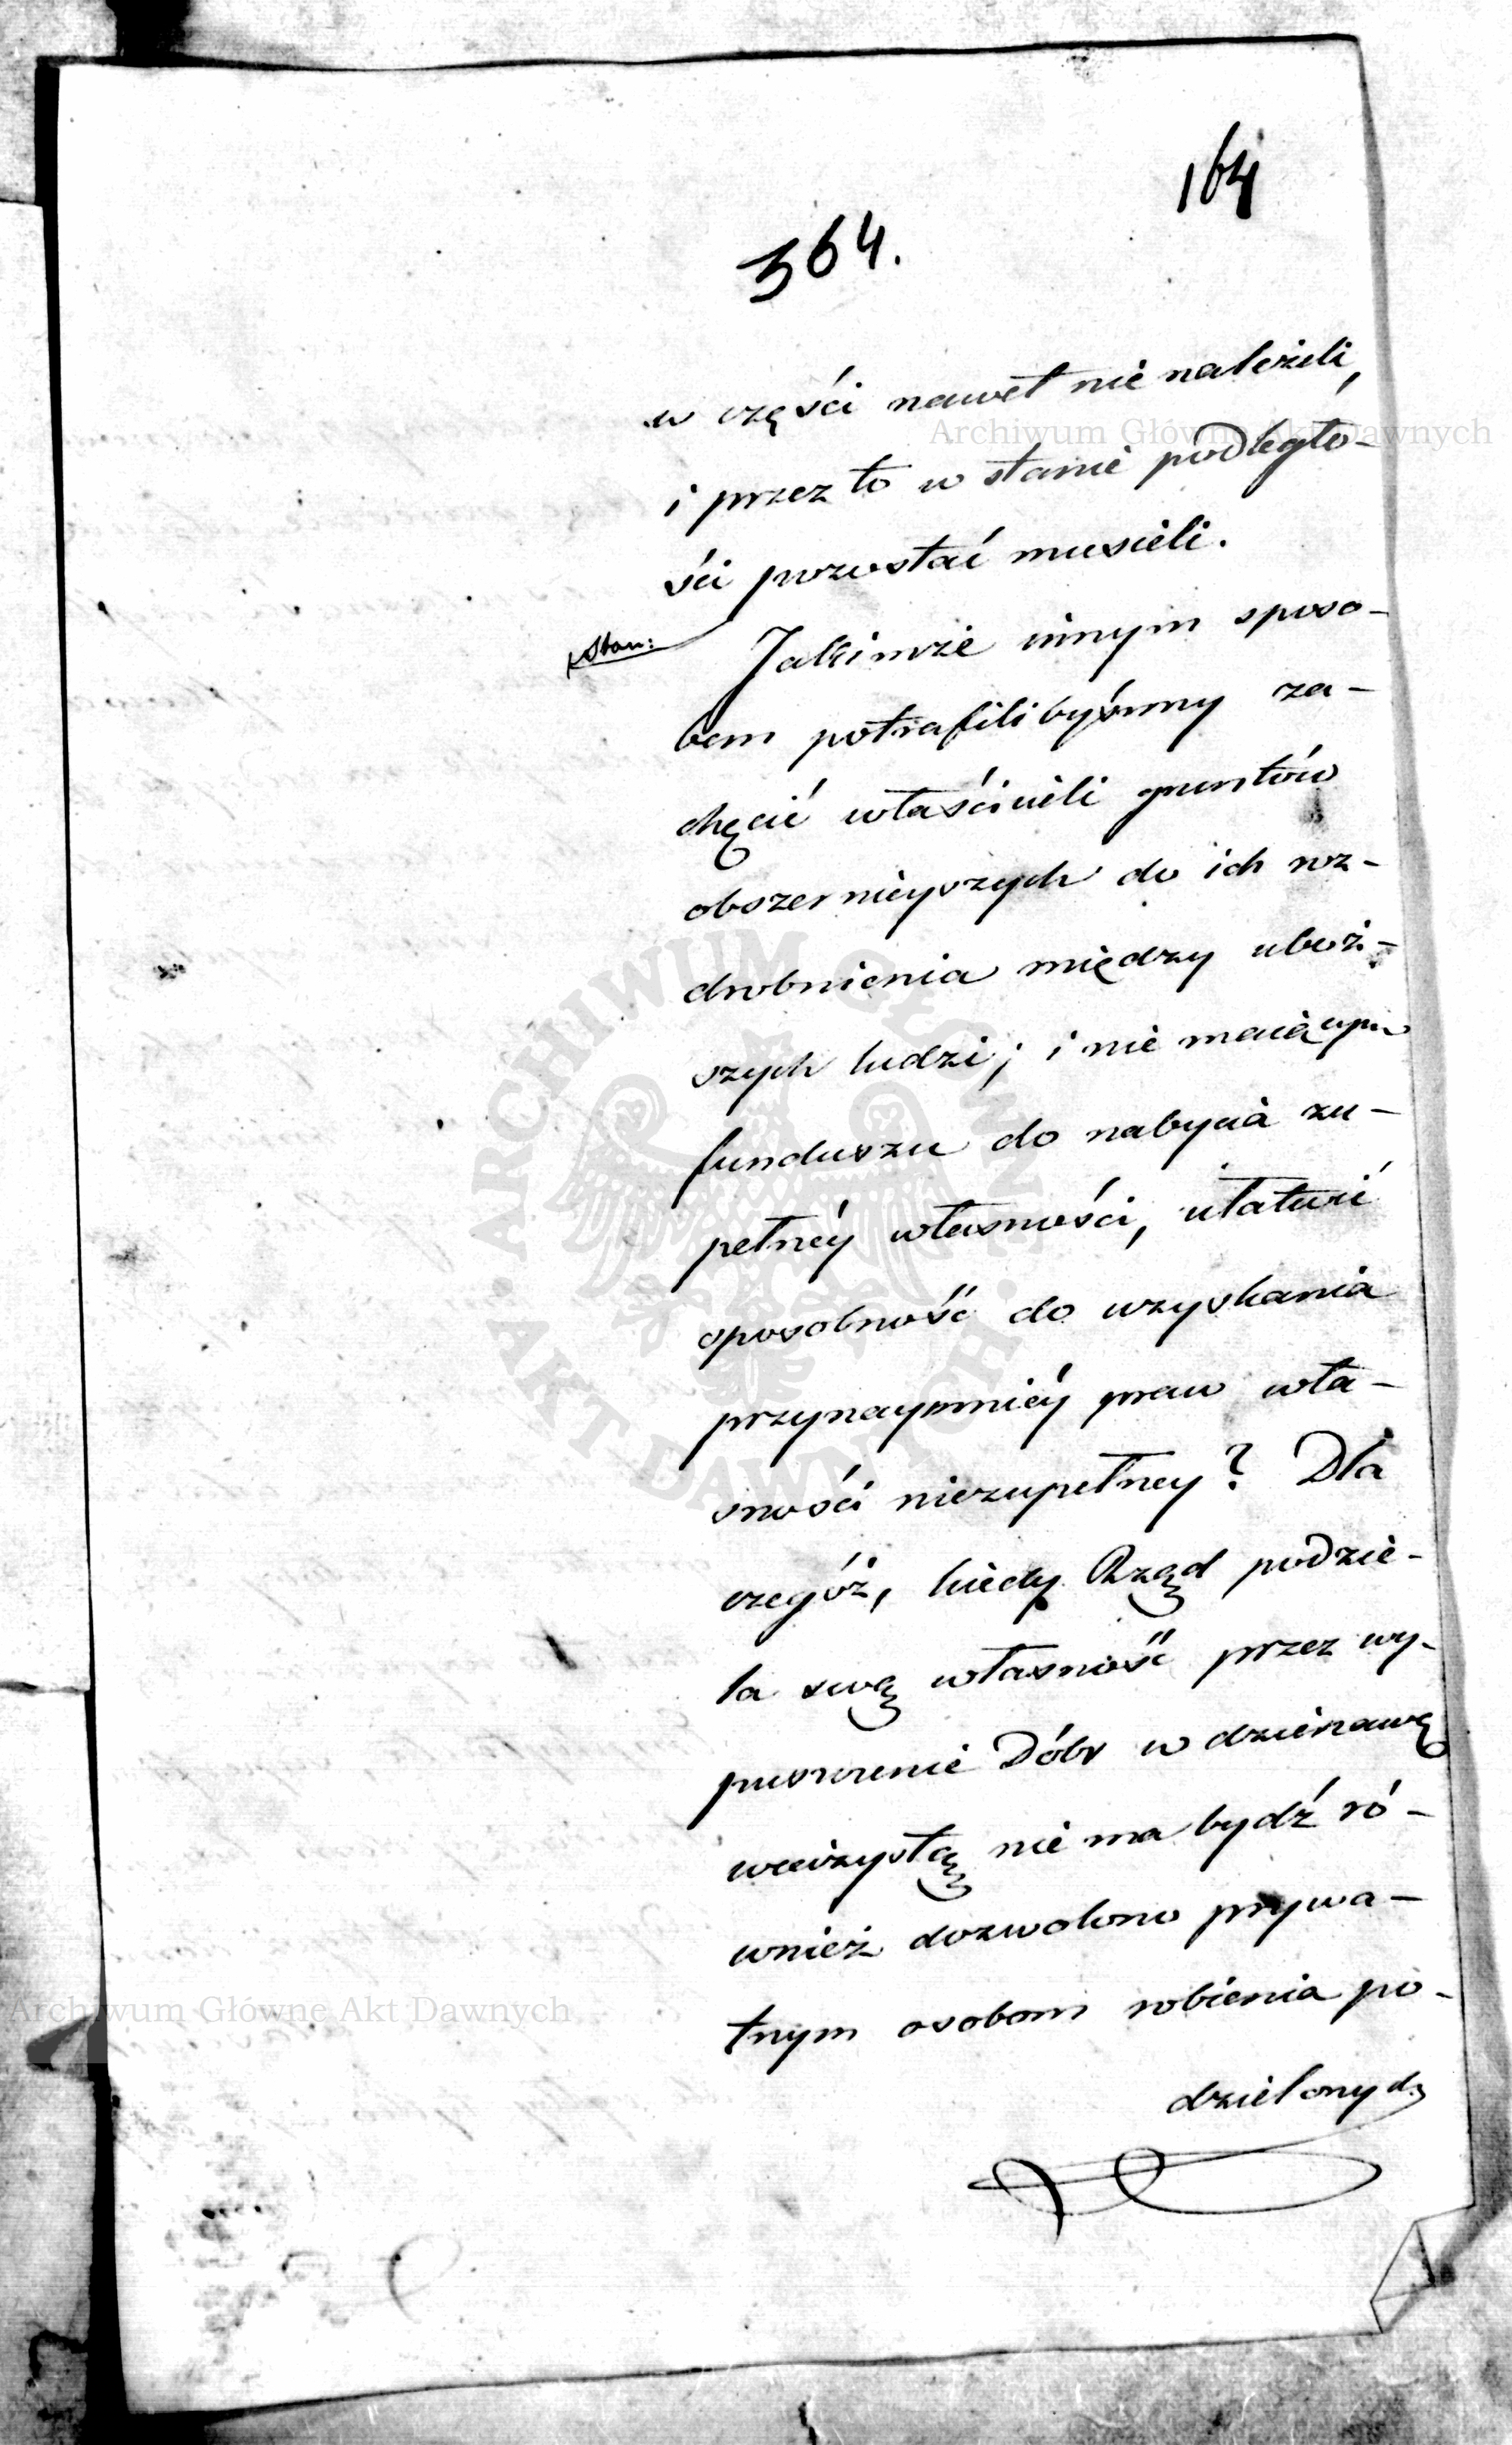 164
364.
w części nawet nie należeli,
Archiwum Główne Akt Dawnych
i przez to w stanie podległo-
ści pozostać musieli.
Stan:
Jakimże innym sposo-
bem potrafilibyśmy za-
chęcić właścicieli gruntów
obszernieyszych do ich roz-
drobnienia między uboż-
szych ludzi; i nie maiącym
funduszu do nabycia zu-
pełnéy własności, ułatwić
sposobność do uzyskania
przynaymniéy praw wła-
sności niezupełney? Dla
czegóż, kiedy Rząd podzie-
la swą własność przez wy-
puszczenie Dóbr w dzierzawę
wieczystą nie ma bydź ró-
wnież dozwolono prywa-
tnym osobom robienia po-
dzielonych
Archiwum Główne Akt Dawnych
ARCHIWUM GŁÓWNE • AKT DAWNYCH •